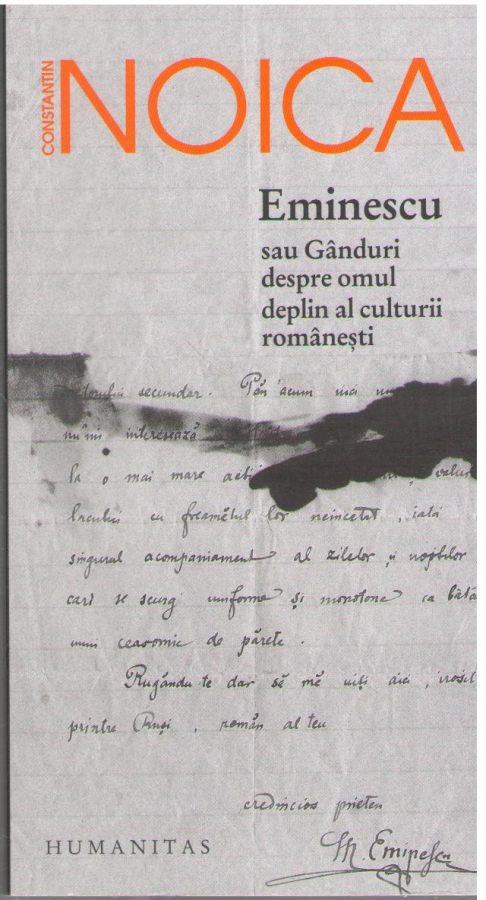 CONSTANTIN
NOICA
Eminescu
sau Gânduri
despre omul
deplin al culturii
românești
secundar. Păn'acum nici
interesează
la o mai mare valu
lacului cu freamătul lor neîncetat, iată
singurul acompaniament al zilelor și nopților
cari se scurg uniforme și monotone ca bătă
unui ceasornic de părete.
Rugându te dar să mă uiți aici,
printre Ruși, român al teu
credincios prieten
M. Eminescu
HUMANITAS